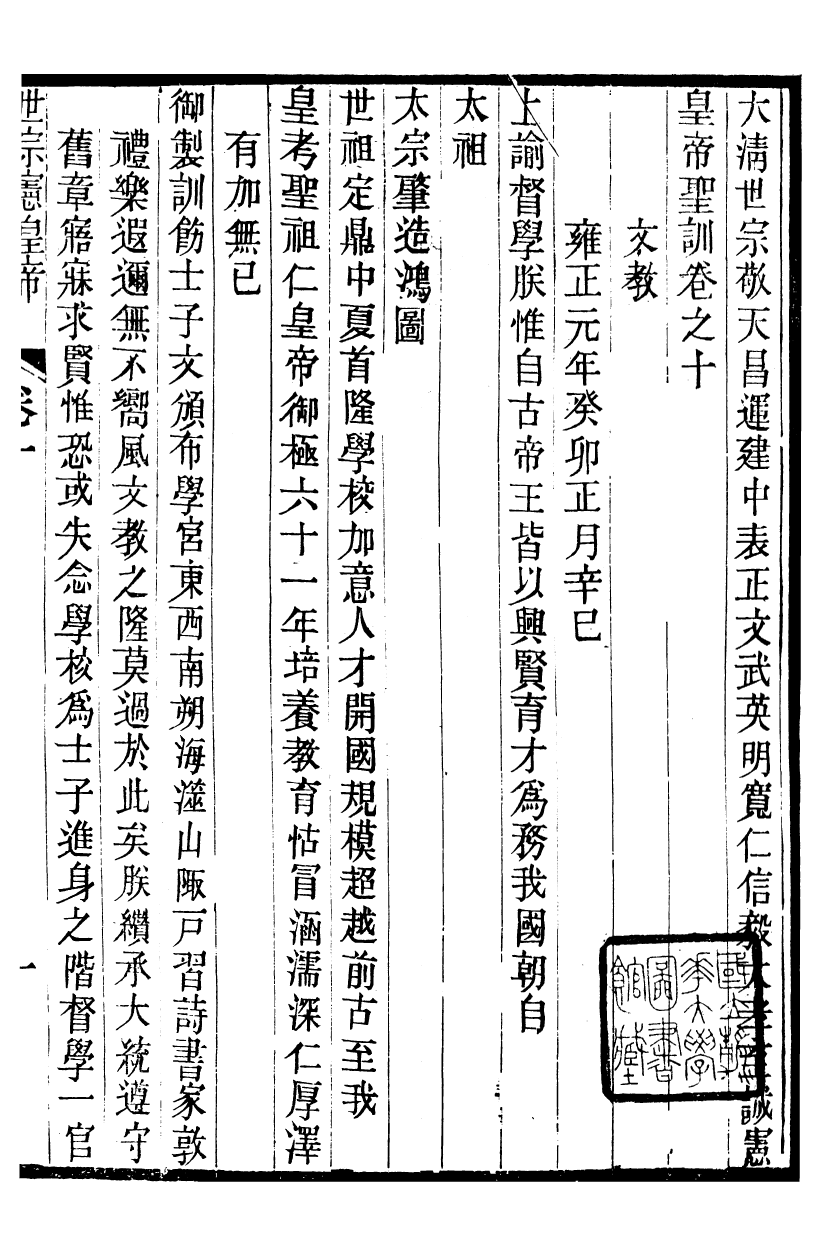 大清世宗敬天昌運建中表正文武英明寬仁信毅大孝至誠憲
皇帝聖訓卷之十
文教
雍正元年癸卯正月辛巳
上諭督學朕惟自古帝王皆以興賢育才爲務我國朝自
太祖
太宗肇造鴻圖
世祖定鼎中夏首隆學校加意人才開國規模超越前古至我
皇考聖祖仁皇帝御極六十一年培養教育怙冒涵濡深仁厚澤
有加無已
御製訓飭士子文頒布學宮東西南朔海澨山陬戸習詩書家敦
禮樂遐邇無不嚮風文教之隆莫過於此矣朕纘承大統遵守
舊章寤寐求賢惟恐或失念學校爲士子進身之階督學一官
世宗憲皇帝
卷十
一
國立清
華大學
圖書
館藏